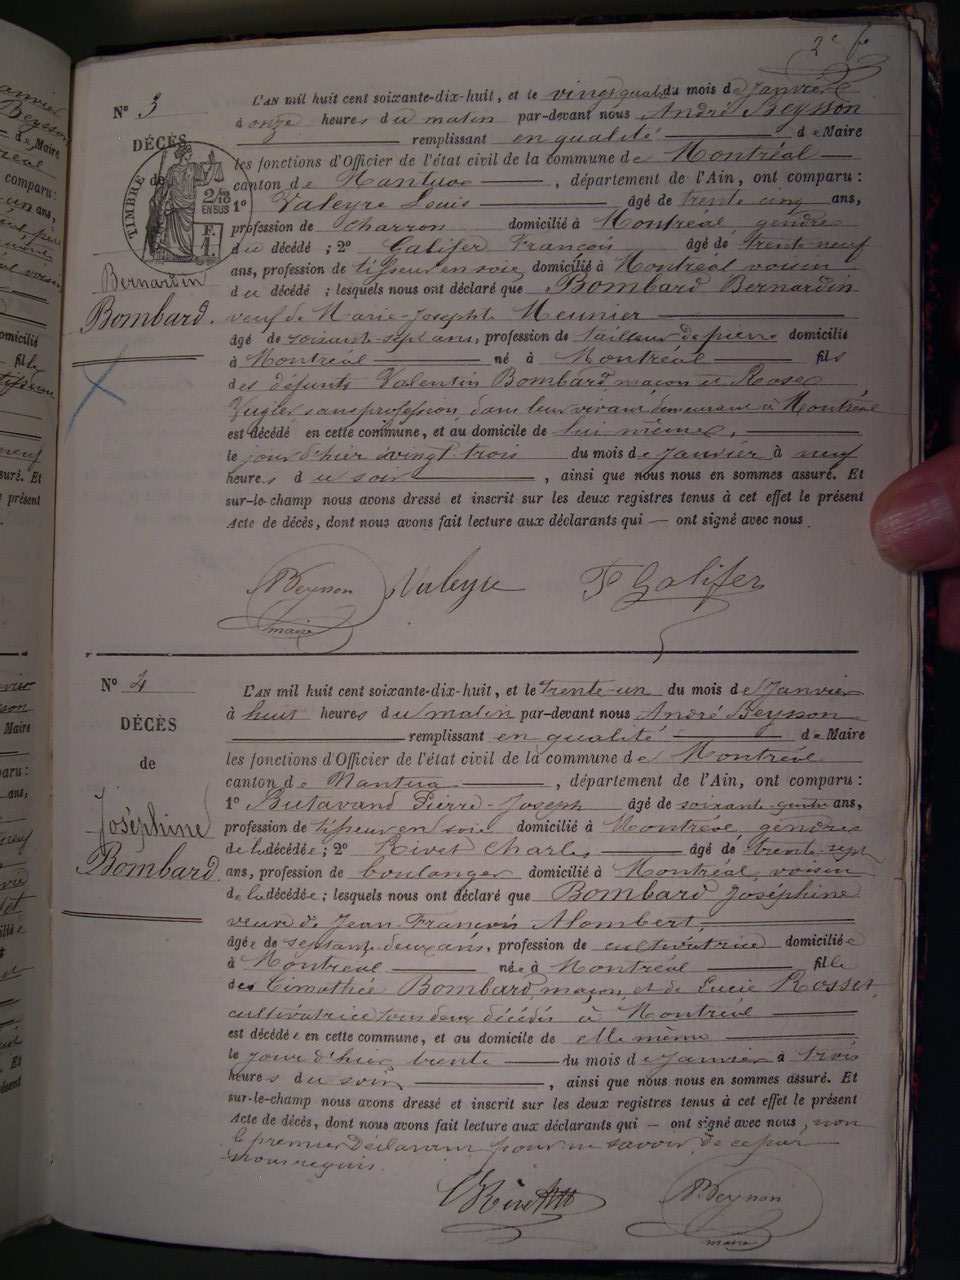 2e
N° 3
DÉCÈS
de
TIMBRE
2/10
EN SUS
F.
1.
Bernardin
Bombard.
L'AN mil huit cent soixante-dix-huit, et le vingt quatre du mois de Janvier
à onze heures du matin par-devant nous André Beysson
remplissant en qualité de Maire
les fonctions d'Officier de l'état civil de la commune de Montréal
canton de Nantua, département de l'Ain, ont comparu :
1° Valeyre Louis âgé de trente cinq ans,
profession de charron domicilié à Montréal, gendre
du décédé ; 2° Galifer François âgé de trente neuf
ans, profession de tisseur en soie domicilié à Montréal voisin
du décédé ; lesquels nous ont déclaré que Bombard Bernardin
veuf de Marie-Josephte Meunier
âgé de soixante sept ans, profession de tailleur de pierre domicilié
à Montréal né à Montréal fils
des défunts Valentin Bombard, maçon et Rose
sans profession, dans leur vivant demeurant à Montréal
est décédé en cette commune, et au domicile de lui même,
le jour d'hier vingt trois du mois de Janvier à neuf
heures du soir, ainsi que nous nous en sommes assuré. Et
sur-le-champ nous avons dressé et inscrit sur les deux registres tenus à cet effet le présent
Acte de décès, dont nous avons fait lecture aux déclarants qui — ont signé avec nous.
Beysson Valeyre F Galifer
maire
N° 4
DÉCÈS
de
Joséphine
Bombard.
L'AN mil huit cent soixante-dix-huit, et le trente-un du mois de Janvier
à huit heures du matin par-devant nous André Beysson
remplissant en qualité de Maire
les fonctions d'Officier de l'état civil de la commune de Montréal
canton de Nantua, département de l'Ain, ont comparu :
1° Butavand Pierre-Joseph âgé de soixante ans,
profession de tisseur en soie domicilié à Montréal, gendre
de la décédée ; 2° Rivet Charles âgé de trente-sept
ans, profession de boulanger domicilié à Montréal, voisin
de la décédée ; lesquels nous ont déclaré que Bombard Joséphine
veuve de Jean-François Alombert,
âgée de septante-deux ans, profession de cultivatrice domiciliée
à Montréal née à Montréal fille
des Timothée Bombard, maçon, et de Lucie Rosset,
cultivatrice tous deux décédés à Montréal
est décédée en cette commune, et au domicile de elle même
le jour d'hier trente du mois de Janvier à trois
heures du soir, ainsi que nous nous en sommes assuré. Et
sur-le-champ nous avons dressé et inscrit sur les deux registres tenus à cet effet le présent
Acte de décès, dont nous avons fait lecture aux déclarants qui — ont signé avec nous, non
le premier Déclarant pour ne savoir, de ce par
nous requis.
C Rivet Beysson
maire